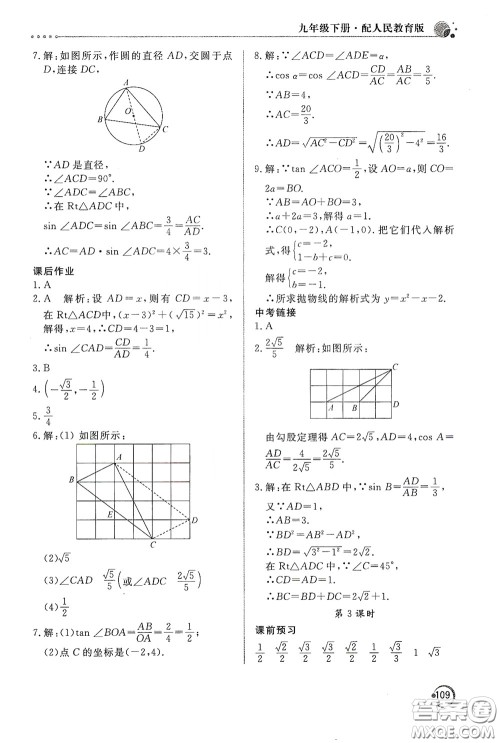 九年级下册·配人民教育版
7.解:如图所示,作圆的直径 AD,交圆于点
D,连接 DC,
A
O
B
C
D
∵AD 是直径,
∴∠ACD=90°.
∵∠ADC=∠ABC,
∴在 Rt△ADC 中,
sin ∠ADC=sin ∠ABC=3/4=AC/AD.
∴AC=AD·sin ∠ADC=4×3/4=3.
课后作业
1.A
2.A 解析:设 AD=x,则有 CD=x-3,
在 Rt△ACD 中,(x-3)²+(√15)²=x²,
解得,x=4,∴CD=4-3=1,
∴sin ∠CAD=CD/AD=1/4.
3.B
4.(-√3/2,-1/2)
5.3/4
6.解:(1)如图所示:
A
B
D
C
(2)√5
(3)∠CAD √5/5(或∠ADC 2√5/5)
(4)1/2
7.解:(1)tan ∠BOA=AB/OA=2/4=1/2;
(2)点 C 的坐标是(-2,4).
8.解:∵∠ACD=∠ADE=α,
∴cos α=cos∠ACD=CD/AC=AB/AC=3/5.
∵AB=4,
∴AC=20/3.
∴AD=√(AC²-CD²)=√((20/3)²-4²)=16/3
9.解:∵tan ∠ACO=1/2,设 AO=a,则 CO=
2a=BO.
∵AB=3,
∴a+2a=3,解得 a=1.
∴C(0,-2),A(1,0).把它们代入解析
式,得{c=-2,
1-b+c=0.
解得{c=-2,
b=-1.
∴所求抛物线的解析式为 y=x²-x-2.
中考链接
1.A
2.2√5/5 解析:如图所示:
C
A
B
D
由勾股定理得 AC=2√5,AD=4,cos A
=AD/AC=4/2√5=2√5/5.
3.解:在 Rt△ABD 中,∵sin B=AD/AB=1/3,
又∵AD=1,
∴AB=3.
∵BD²=AB²-AD²,
∴BD=√(3²-1²)=2√2.
在 Rt△ADC 中,∵∠C=45°,
∴CD=AD=1.
∴BC=BD+DC=2√2+1.
第 3 课时
课前预习
1/2 √2/2 √3/2 √3/2 √2/2 1/2 √3/3 1 √3
109